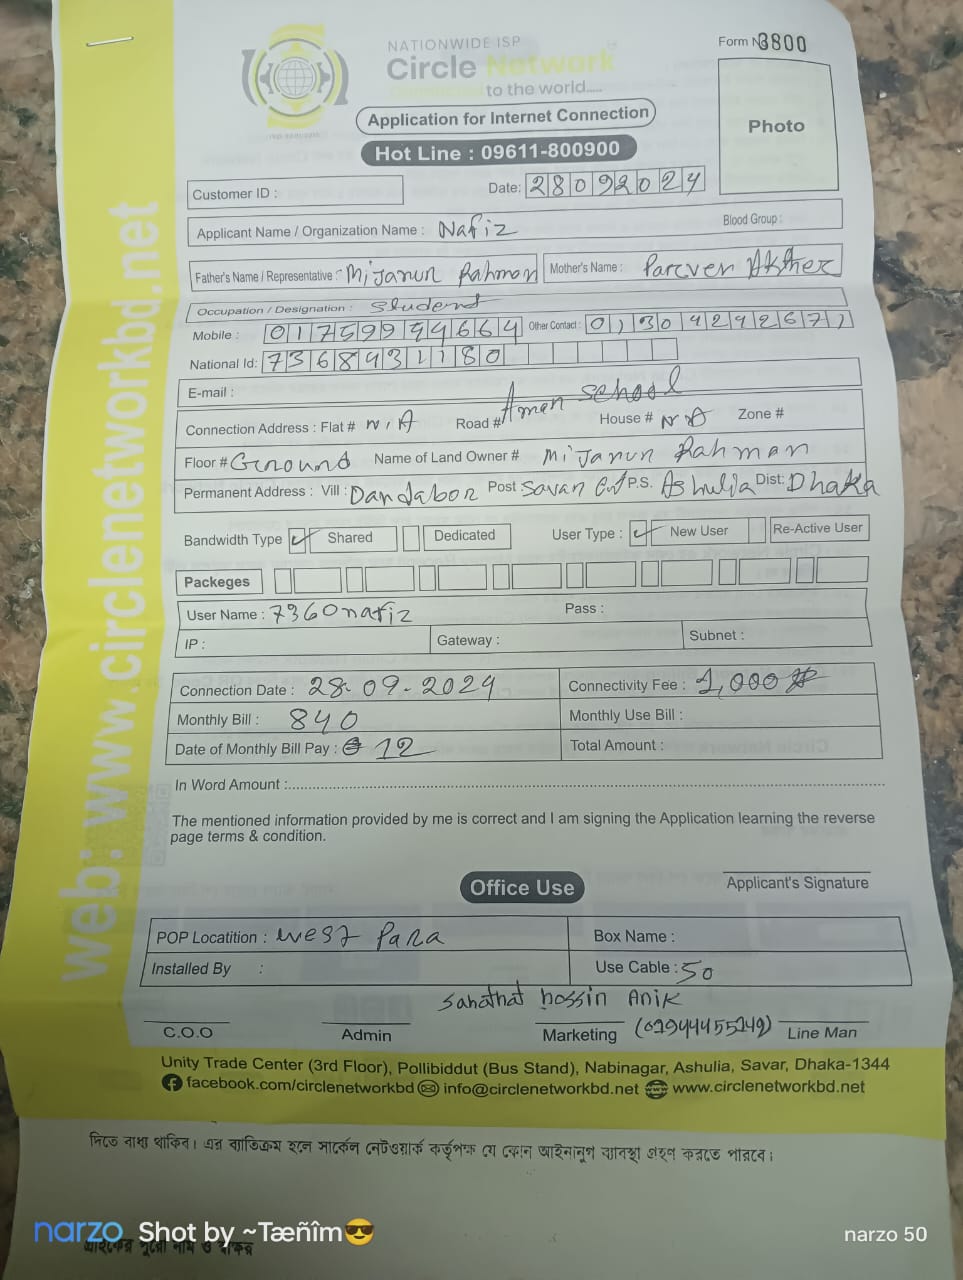 NATIONWIDE ISP
Circle Network
to the world.....
Form No 3800
Photo
Application for Internet Connection
Hot Line : 09611-800900
Customer ID :
Date: 28092024
Applicant Name / Organization Name : Nafiz Blood Group :
Father's Name / Representative : Mijanur Rahman Mother's Name : Parven Akther
Occupation / Designation : Student
Mobile : Other Contact :
National Id: 7368431180
E-mail :
Aman school
Connection Address : Flat # N/A Road # House # N A Zone #
Floor # Ground Name of Land Owner # Mijanur Rahman
Permanent Address : Vill : Dandabor Post : Savar P.S. Ashulia Dist: Dhaka
Bandwidth Type Shared Dedicated User Type : New User Re-Active User
Packeges
User Name : 7360nafiz Pass :
IP : Gateway : Subnet :
Connection Date : 28-09-2024 Connectivity Fee : 1,000
Monthly Bill : 840 Monthly Use Bill :
Date of Monthly Bill Pay : 12 Total Amount :
In Word Amount :
The mentioned information provided by me is correct and I am signing the Application learning the reverse
page terms & condition.
Applicant's Signature
Office Use
POP Locatition : West Para Box Name :
Installed By : Use Cable : 50
hossin Anik
C.O.O Admin Marketing (01944455249) Line Man
Unity Trade Center (3rd Floor), Pollibiddut (Bus Stand), Nabinagar, Ashulia, Savar, Dhaka-1344
facebook.com/circlenetworkbd info@circlenetworkbd.net www.circlenetworkbd.net
web: www.circlenetworkbd.net
দিতে বাধ্য থাকিব। এর ব্যতিক্রম হলে সার্কেল নেটওয়ার্ক কর্তৃপক্ষ যে কোন আইনানুগ ব্যবস্থা গ্রহণ করতে পারবে।
গ্রাহকের পুরো নাম ও স্বাক্ষর
narzo Shot by ~Tæñîm😎 narzo 50